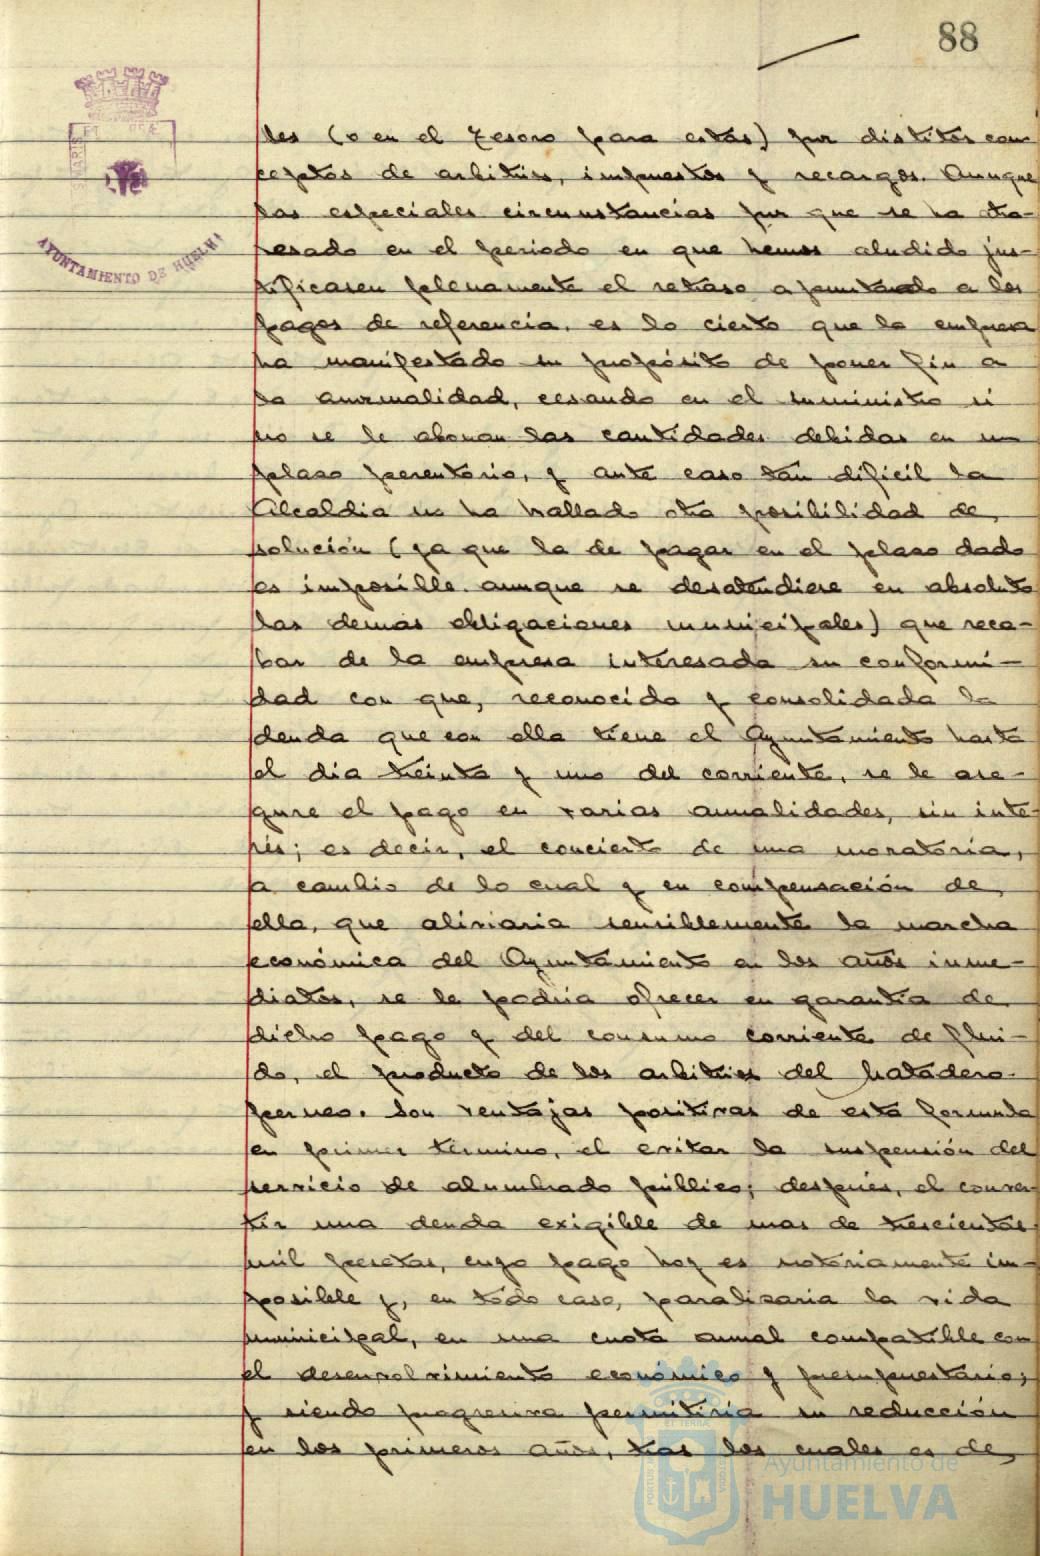 88
AYUNTAMIENTO DE HUELVA
les (o en el Tesoro para estas) por distitos con-
ceptos de arbitrios, impuestos y recargos. Aunque
las especiales circunstancias por que se ha atra-
vesado en el periodo en que hemos aludido jus-
tificasen plenamente el retraso apuntado a los
pagos de referencia, es lo cierto que la empresa
ha manifestado su propósito de poner fin a
la anormalidad, cesando en el suministro si
no se le abonan las cantidades debidas en un
plazo perentorio, y ante caso tan dificil la
Alcaldia no ha hallado otra posibilidad de
solución (ya que la de pagar en el plazo dado
es imposible aunque se desatendiere en absoluto
las demás obligaciones municipales) que reca-
bar de la empresa interesada su conformi-
dad con que, reconocida y consolidada la
deuda que con ella tiene el Ayuntamiento hasta
el dia treinta y uno del corriente, se le ase-
gure el pago en varias anualidades, sin inte-
rés; es decir, el concierto de una moratoria,
a cambio de lo cual y en compensación de
ella, que aliviaria sensiblemente la marcha
económica del Ayuntamiento en los años inme-
diatos, se le podria ofrecer en garantia de
dicho pago y del consumo corriente de flui-
do, el producto de los arbitrios del Matadero
perneo. Son ventajas positivas de esta formula
en primer término, el evitar la suspensión del
servicio de alumbrado público; después, el conver-
tir una deuda exigible de mas de trescientas
mil pesetas, cuyo pago hoy es notoriamente im-
posible y, en todo caso, paralizaria la vida
municipal, en una cuota anual compatible con
el desenvolvimiento económico y presupuestario;
y siendo progresiva permitiria su reducción
en los primeros años, tras los cuales es de
Ayuntamiento de
HUELVA